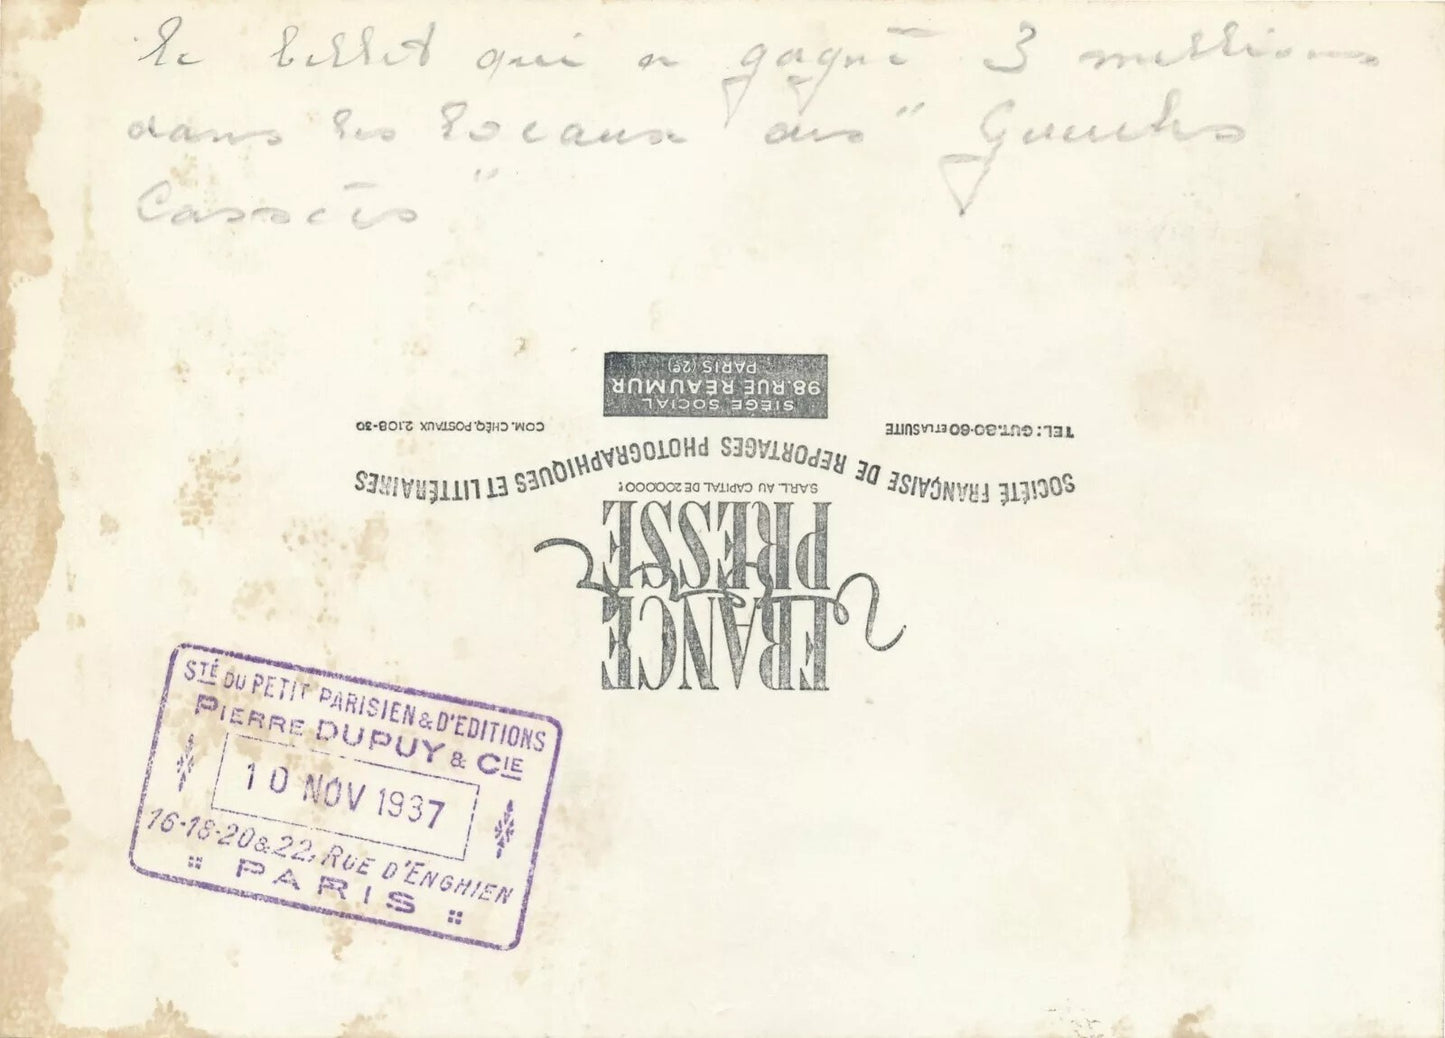 le billet qui a gagné 3 millions
dans les locaux des "Gueules
Cassées"
SIÈGE SOCIAL
98.RUE RÉAUMUR
PARIS (2e)
TEL: GUT.80-60 ET LA SUITE
COM. CHÈQ. POSTAUX 2108-30
SOCIÉTÉ FRANÇAISE DE REPORTAGES PHOTOGRAPHIQUES ET LITTÉRAIRES
S.A.R.L. AU CAPITAL DE 200.000f
FRANCE
PRESSE
STÉ DU PETIT PARISIEN & D'EDITIONS
PIERRE DUPUY & CIE
10 NOV 1937
16-18-20 & 22, RUE D'ENGHIEN
PARIS